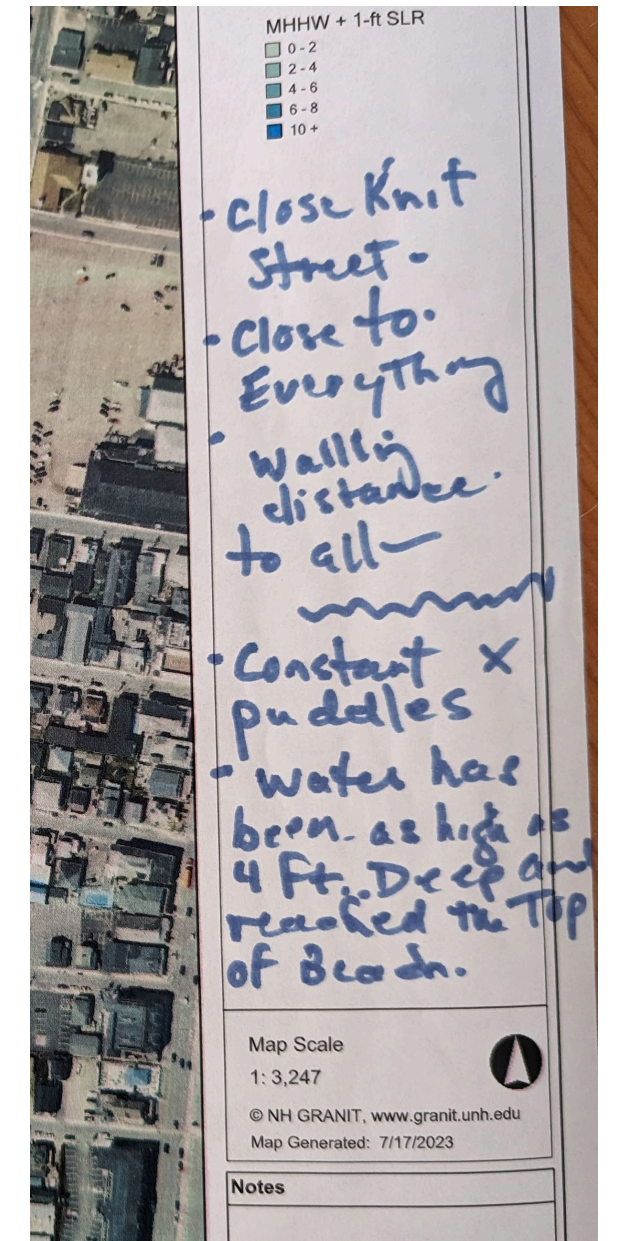 MHHW + 1-ft SLR
0 - 2
2 - 4
4 - 6
6 - 8
10 +
• Close Knit
Street -
• Close to.
Everything
• Walking
distance.
to all —
• Constant X
puddles
• Water has
been - as high as
4 Ft.. Deep and
reached the Top
of Beach.
Map Scale
1: 3,247
© NH GRANIT, www.granit.unh.edu
Map Generated: 7/17/2023
Notes